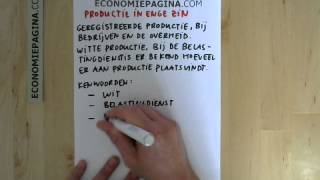 ECONOMIEPAGINA.COM
ECONOMIEPAGINA.COM
PRODUCTIE IN ENGE ZIN
GEREGISTREERDE PRODUCTIE, BIJ
BEDRIJVEN EN DE OVERHEID.
WITTE PRODUCTIE, BIJ DE BELAS-
TINGDIENSTIS ER BEKEND HOEVEEL
ER AAN PRODUCTIE PLAATSVINDT.
KENWOORDEN:
- WIT
- BELASTINGDIENST
-